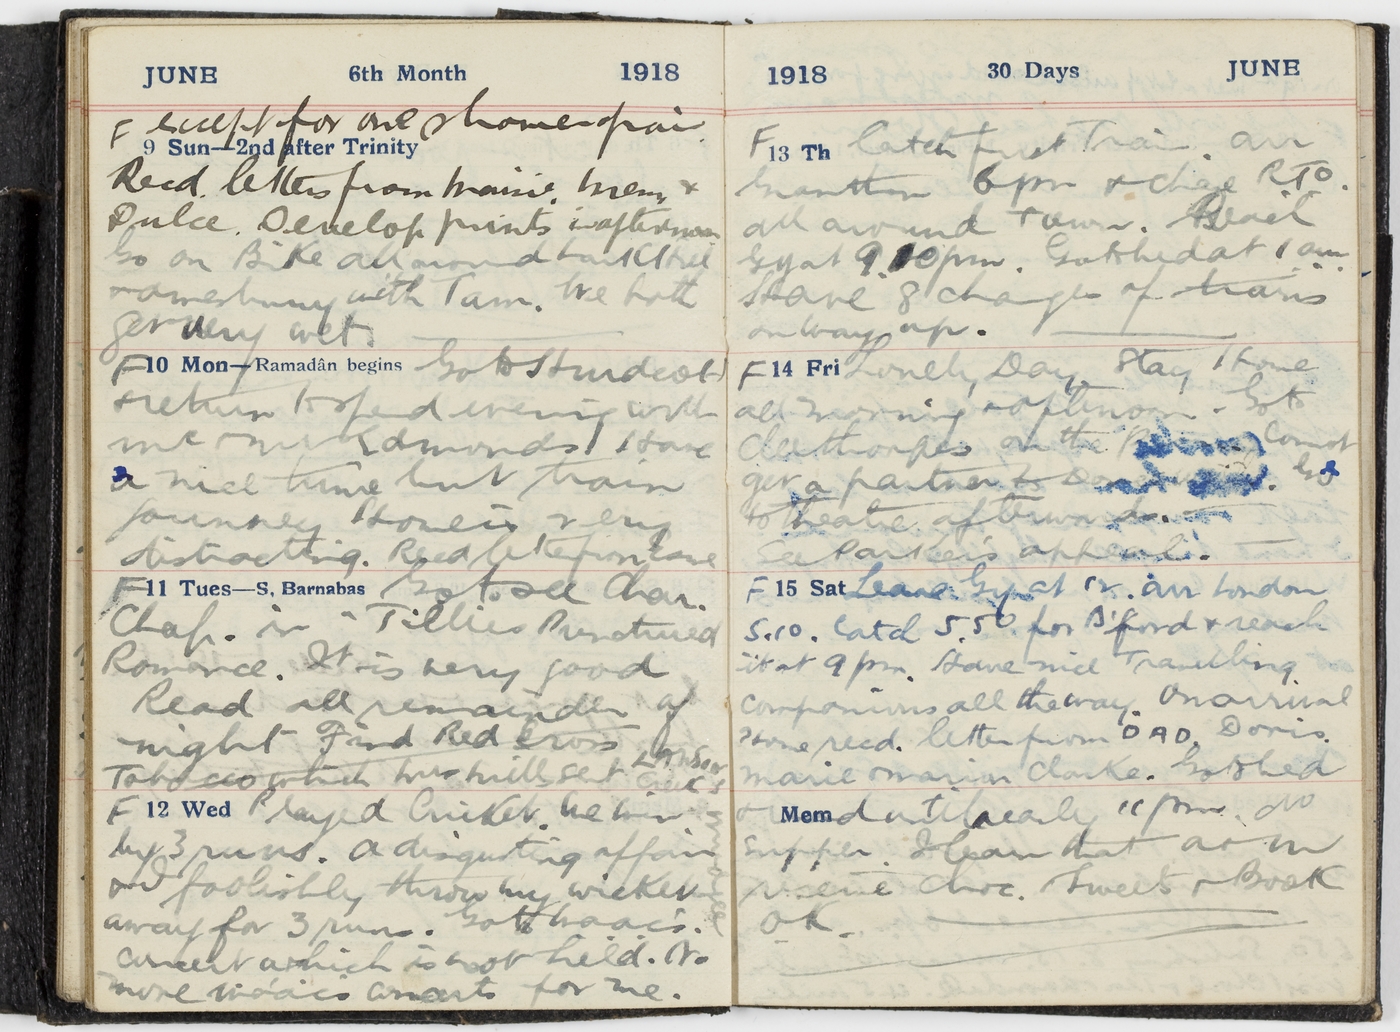 JUNE 6th Month 1918
F except for one shower of rain
9 Sun—2nd after Trinity
Recd. letters from Maisie, Mem, &
Dulce. Develop prints in afternoon
Go on Bike all around
with Tam. We both
get very wet.
F 10 Mon—Ramadân begins Go to
& return to spend evening with
Mr & Mrs Edmonds. Have
a nice time but train
journey Home is very
distracting. Recd letter from
F 11 Tues—S. Barnabas Go to see Char.
Chap. in "Tillies Punctured
Romance. It is very good
Read all remainder of
night Find Red Cross
Tobacco which
F 12 Wed Played Cricket. We win
by 3 runs. A disgusting affair
and foolishly throw my wicket
away for 3 runs. Go to Isaac's
concert which is not held. No
more Isaacs concerts for me.
1918 30 Days JUNE
F 13 Th Catch first Train. arr
Grantham 6 pm & chase RTO.
all around Town. Reach
Gy at 9.10 pm. Got to bed at 1 am.
Have 8 changes of trains
on way up.
F 14 Fri Lonely Day. Stay Home
all morning & afternoon. Go to
Cleethorpes on the Cannot
get a partner to Go
to theatre afterwards.
See Parker's appeal.
F 15 Sat Leave Gy at 12. arr London
5.10. Catch 5.50 for B'ford & reach
it at 9 pm. Have nice Travelling
companions all the way. On arrival
Home recd. letter from DAD, Doris,
Marie & Marion Clarke. Got to bed
Mem until nearly 11 pm. No
supper. I learn that
reserve Choc. Sweets & Book
OK.